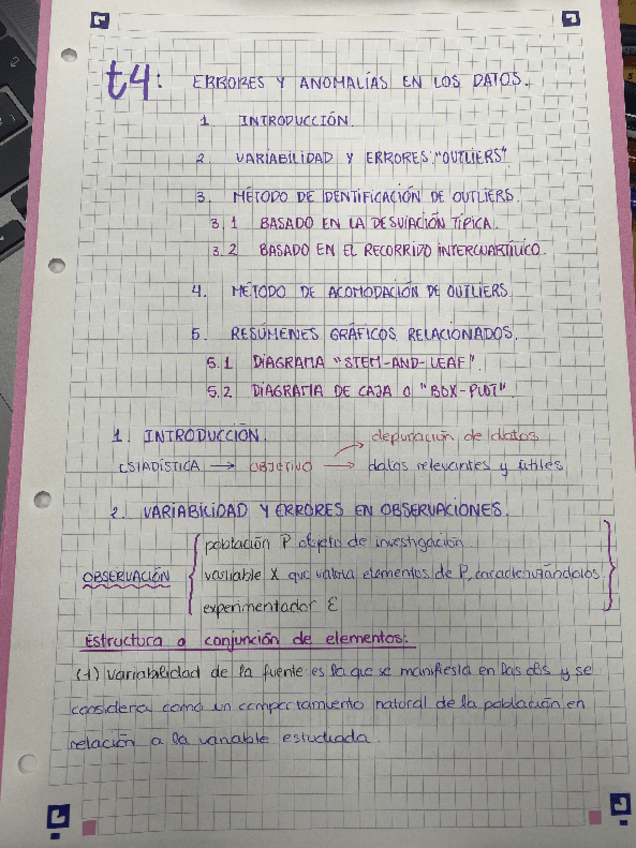 t4: ERRORES Y ANOMALÍAS EN LOS DATOS.
1. INTRODUCCIÓN.
2. VARIABILIDAD Y ERRORES: "OUTLIERS"
3. MÉTODO DE IDENTIFICACIÓN DE OUTLIERS.
3.1 BASADO EN LA DESVIACIÓN TÍPICA.
3.2 BASADO EN EL RECORRIDO INTERCUARTÍLICO.
4. MÉTODO DE ACOMODACIÓN DE OUTLIERS.
5. RESÚMENES GRÁFICOS RELACIONADOS.
5.1 DIAGRAMA "STEM-AND-LEAF".
5.2 DIAGRAMA DE CAJA O "BOX-PLOT".
1. INTRODUCCIÓN.
depuración de datos
ESTADÍSTICA → OBJETIVO → datos relevantes y útiles
2. VARIABILIDAD Y ERRORES EN OBSERVACIONES.
población P objeto de investigación
OBSERVACIÓN variable X que valora elementos de P, caracterizándolos
experimentador E
Estructura o conjunción de elementos:
(1) Variabilidad de la fuente: es la que se manifiesta en las obs y se
considera como un comportamiento natural de la población en
relación a la variable estudiada.